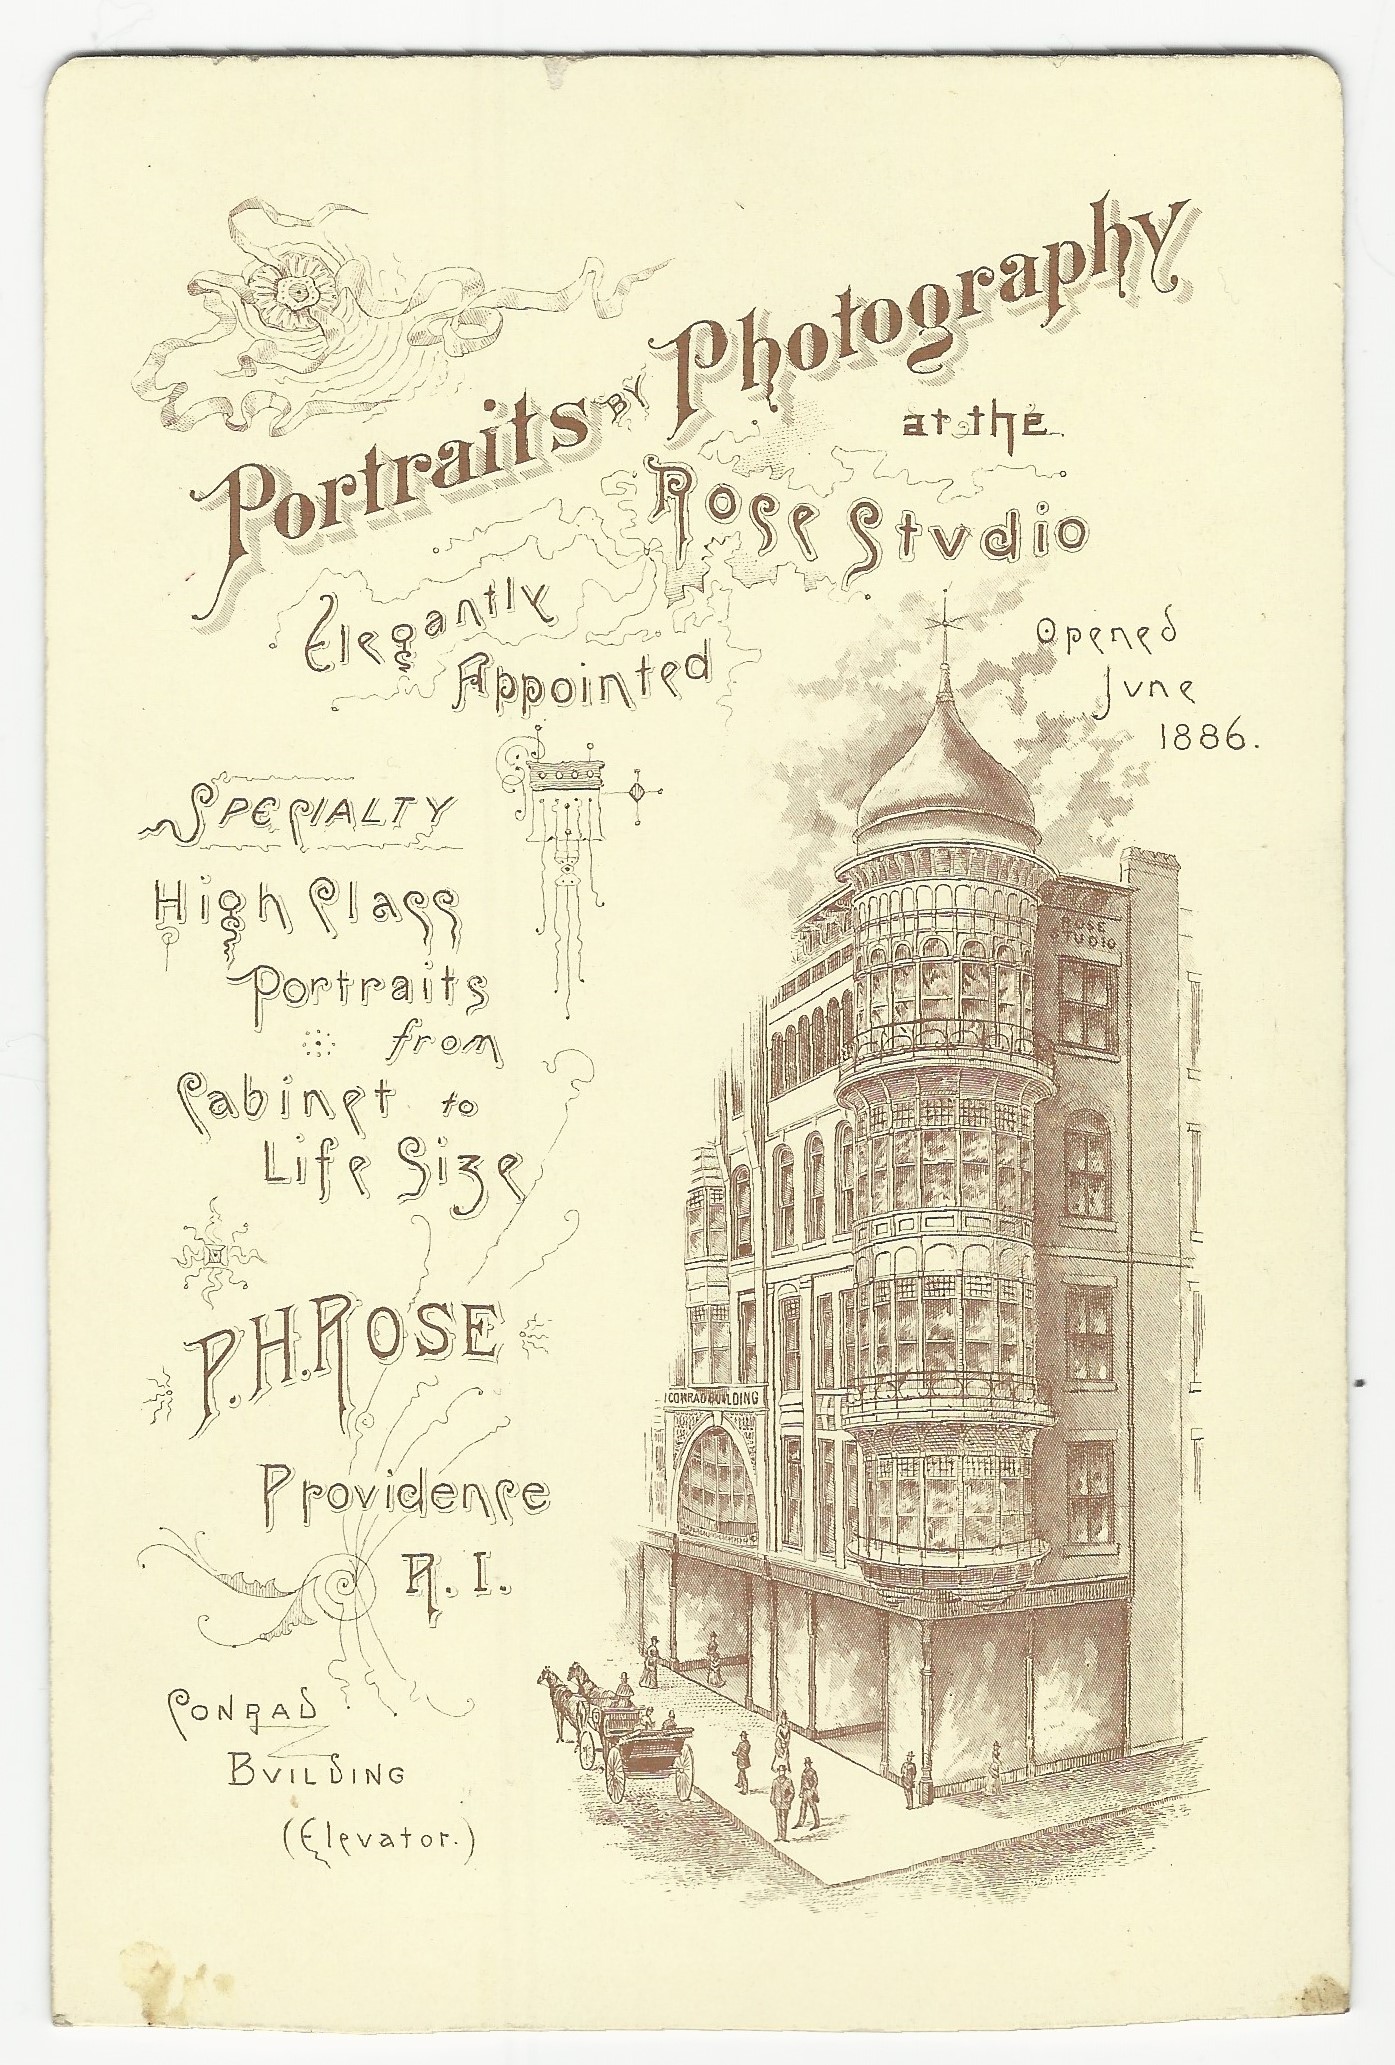 Portraits BY Photography
at the
Rose Stvdio
Elegantly
Appointed
Opened
Jvne
1886.
SPECIALTY
High Class
Portraits
from
Cabinet to
Life Size
ROSE
STUDIO
P.H. ROSE
CONRAD BUILDING
Providence
R. I.
CONRAD
BVILDING
(Elevator.)